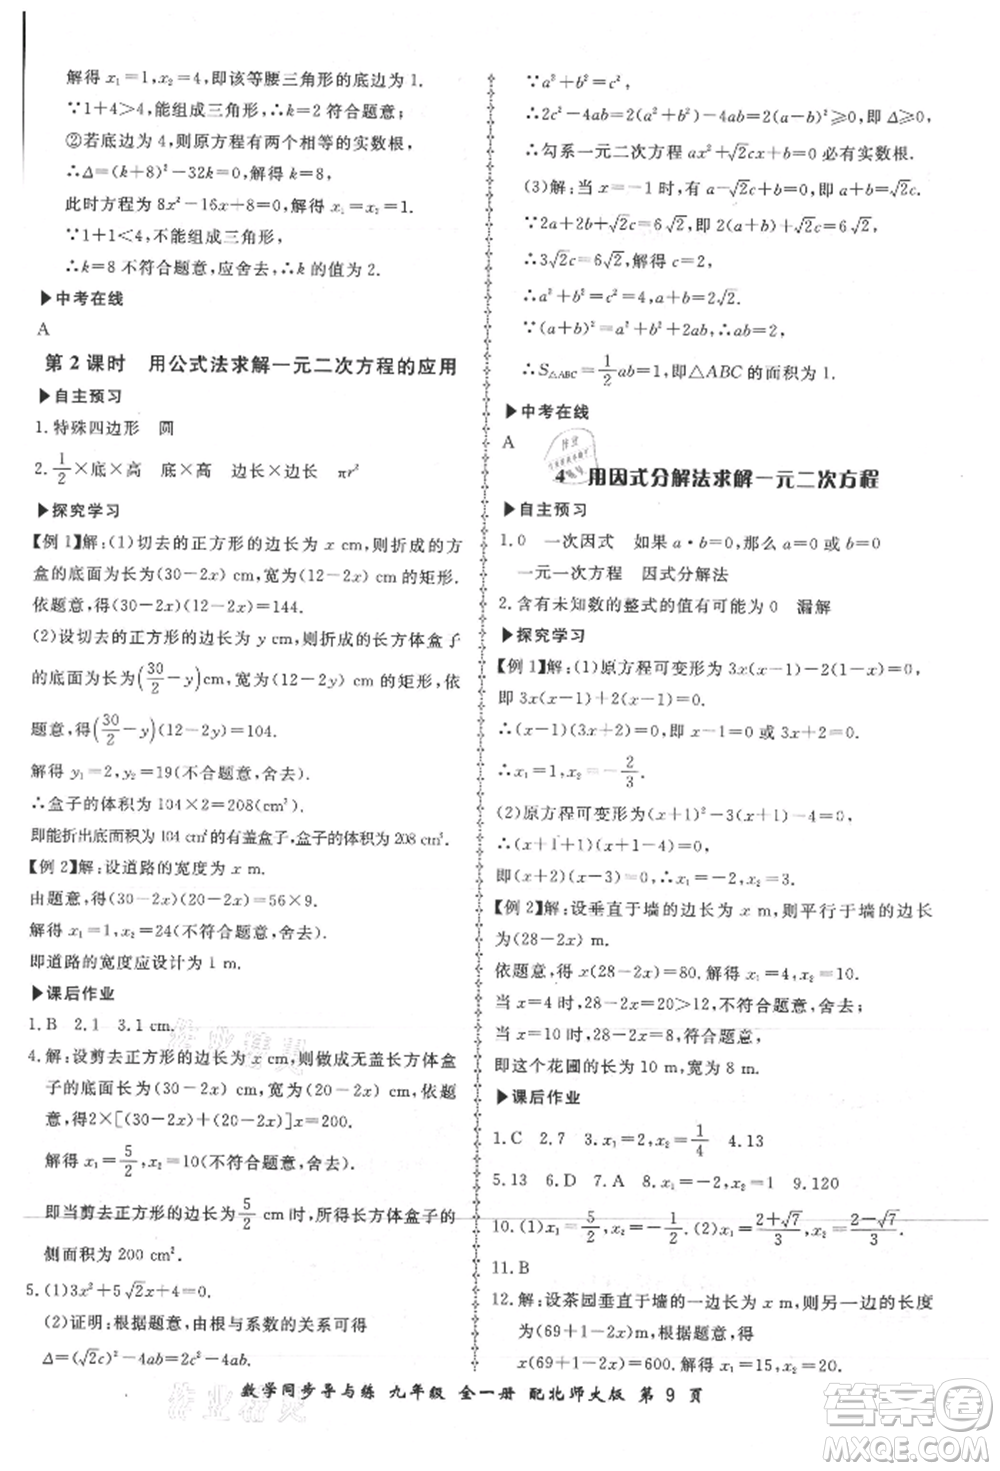 解得 x₁=1,x₂=4,即该等腰三角形的底边为 1.
∵1+4>4,能组成三角形,∴k=2 符合题意;
②若底边为 1,则原方程有两个相等的实数根,
∴Δ=(k+8)²-32k=0,解得 k=8,
此时方程为 8x²-16x+8=0,解得 x₁=x₂=1.
∵1+1<4,不能组成三角形,
∴k=8 不符合题意,应舍去,∴k 的值为 2.
▶中考在线
A
第 2 课时 用公式法求解一元二次方程的应用
▶自主预习
1.特殊四边形 圆
2.1/2×底×高 底×高 边长×边长 πr²
▶探究学习
【例 1】解:(1)切去的正方形的边长为 x cm,则折成的方
盒的底面为长(30-2x) cm,宽为(12-2x) cm 的矩形.
依题意,得(30-2x)(12-2x)=144.
(2)设切去的正方形的边长为 y cm,则折成的长方体盒子
的底面为长(30/2-y)cm,宽为(12-2y) cm 的矩形,依
题意,得(30/2-y)(12-2y)=104.
解得 y₁=2,y₂=19(不合题意,舍去).
∴盒子的体积为 104×2=208(cm³).
即能折出底面积为 104 cm²的有盖盒子,盒子的体积为 208 cm³.
【例 2】解:设道路的宽度为 x m.
由题意,得(30-2x)(20-2x)=56×9.
解得 x₁=1,x₂=24(不符合题意,舍去).
即道路的宽度应设计为 1 m.
▶课后作业
1.B 2.1 3.1 cm.
4.解:设剪去正方形的边长为 x cm,则做成无盖长方体盒
子的底面长为(30-2x) cm,宽为(20-2x) cm.依题
意,得2×[(30-2x)+(20-2x)]x=200.
解得 x₁=5/2,x₂=10(不符合题意,舍去).
即当剪去正方形的边长为5/2 cm 时,所得长方体盒子的
侧面积为 200 cm².
5.(1)3x²+5√2x+4=0.
(2)证明:根据题意,由根与系数的关系可得
Δ=(√2c)²-4ab=2c²-4ab.
∵a²+b²=c²,
∴2c²-4ab=2(a²+b²)-4ab=2(a-b)²≥0,即 Δ≥0.
∴勾系一元二次方程 ax²+√2cx+b=0 必有实数根.
(3)解:当 x=-1 时,有 a-√2c+b=0,即 a+b=√2c.
∵2a+2b+√2c=6√2,即 2(a+b)+√2c=6√2,
∴3√2c=6√2,解得 c=2.
∴a²+b²=c²=4,a+b=2√2.
∵(a+b)²=a²+b²+2ab,∴ab=2.
∴S△ABC=1/2ab=1,即△ABC 的面积为 1.
▶中考在线
A
4 用因式分解法求解一元二次方程
▶自主预习
1.0 一次因式 如果 a·b=0,那么 a=0 或 b=0
一元一次方程 因式分解法
2.含有未知数的整式的值有可能为 0 漏解
▶探究学习
【例 1】解:(1)原方程可变形为 3x(x-1)-2(1-x)=0,
即 3x(x-1)+2(x-1)=0.
∴(x-1)(3x+2)=0,即 x-1=0 或 3x+2=0.
∴x₁=1,x₂=-2/3.
(2)原方程可变形为(x+1)²-3(x+1)=0.
∴(x+1)(x+1-3)=0,即 x+1=0 或 x-2=0.
∴x₁=-1,x₂=2.
【例 2】解:设垂直于墙的边长为 x m,则平行于墙的边长
为(28-2x) m.
依题意,得 x(28-2x)=80.解得 x₁=4,x₂=10.
当 x=4 时,28-2x=20>12,不符合题意,舍去;
当 x=10 时,28-2x=8,符合题意.
即这个花圃的长为 10 m,宽为 8 m.
▶课后作业
1.C 2.7 3.x₁=-1,x₂=1/4 4.13
5.13 6.D 7.A 8.x₁=-2,x₂=1 9.120
10.(1)x₁=5/2,x₂=-4 (2)x₁=(2+√7)/3,x₂=(2-√7)/3.
11.B
12.解:设茶园垂直于墙的一边长为 x m,则另一边的长度
为(69+1-2x)m.根据题意,得
x(69+1-2x)=600.
数学同步导与练 九年级 全一册 配北师大版 第 9 页
作业精灵
作业精灵
答案圈
MXQE.COM